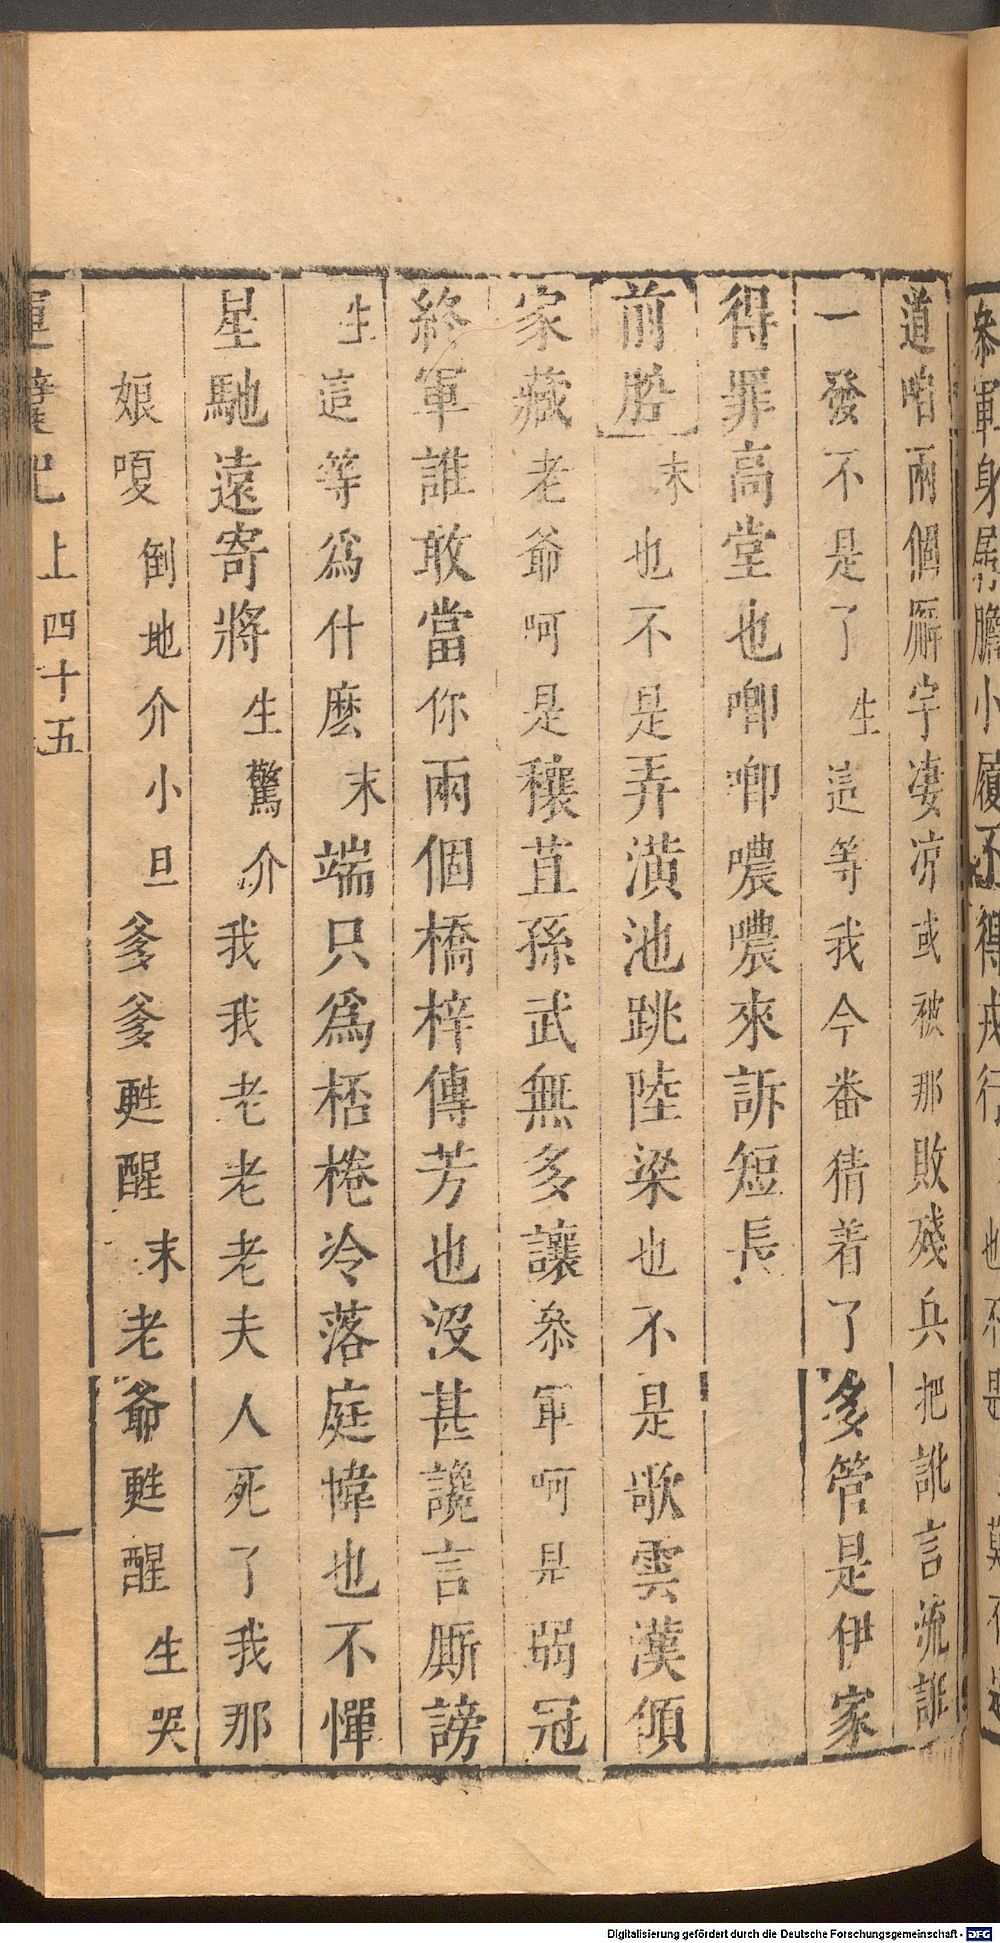 參軍身居膽小履不得戎行也不是
道咱兩個廨宇凄凉或被那敗殘兵把訛言流誑
一發不是了生這等我今番猜着了多管是伊家
得罪高堂也唧唧噥噥來訴短長
前腔末也不是弄潢池跳陸梁也不是歌雲漢頌
家藏老爺呵是穰苴孫武無多讓叅軍呵是弱冠
終軍誰敢當你兩個橋梓傳芳也沒甚讒言厮謗
生這等爲什麽末端只爲桮棬冷落庭幃也不憚
星馳遠寄將生驚介我我老老老夫人死了我那
娘嗄倒地介小旦爹爹甦醒末老爺甦醒生哭
上四十五
Digitalisierung gefördert durch die Deutsche Forschungsgemeinschaft - DFG